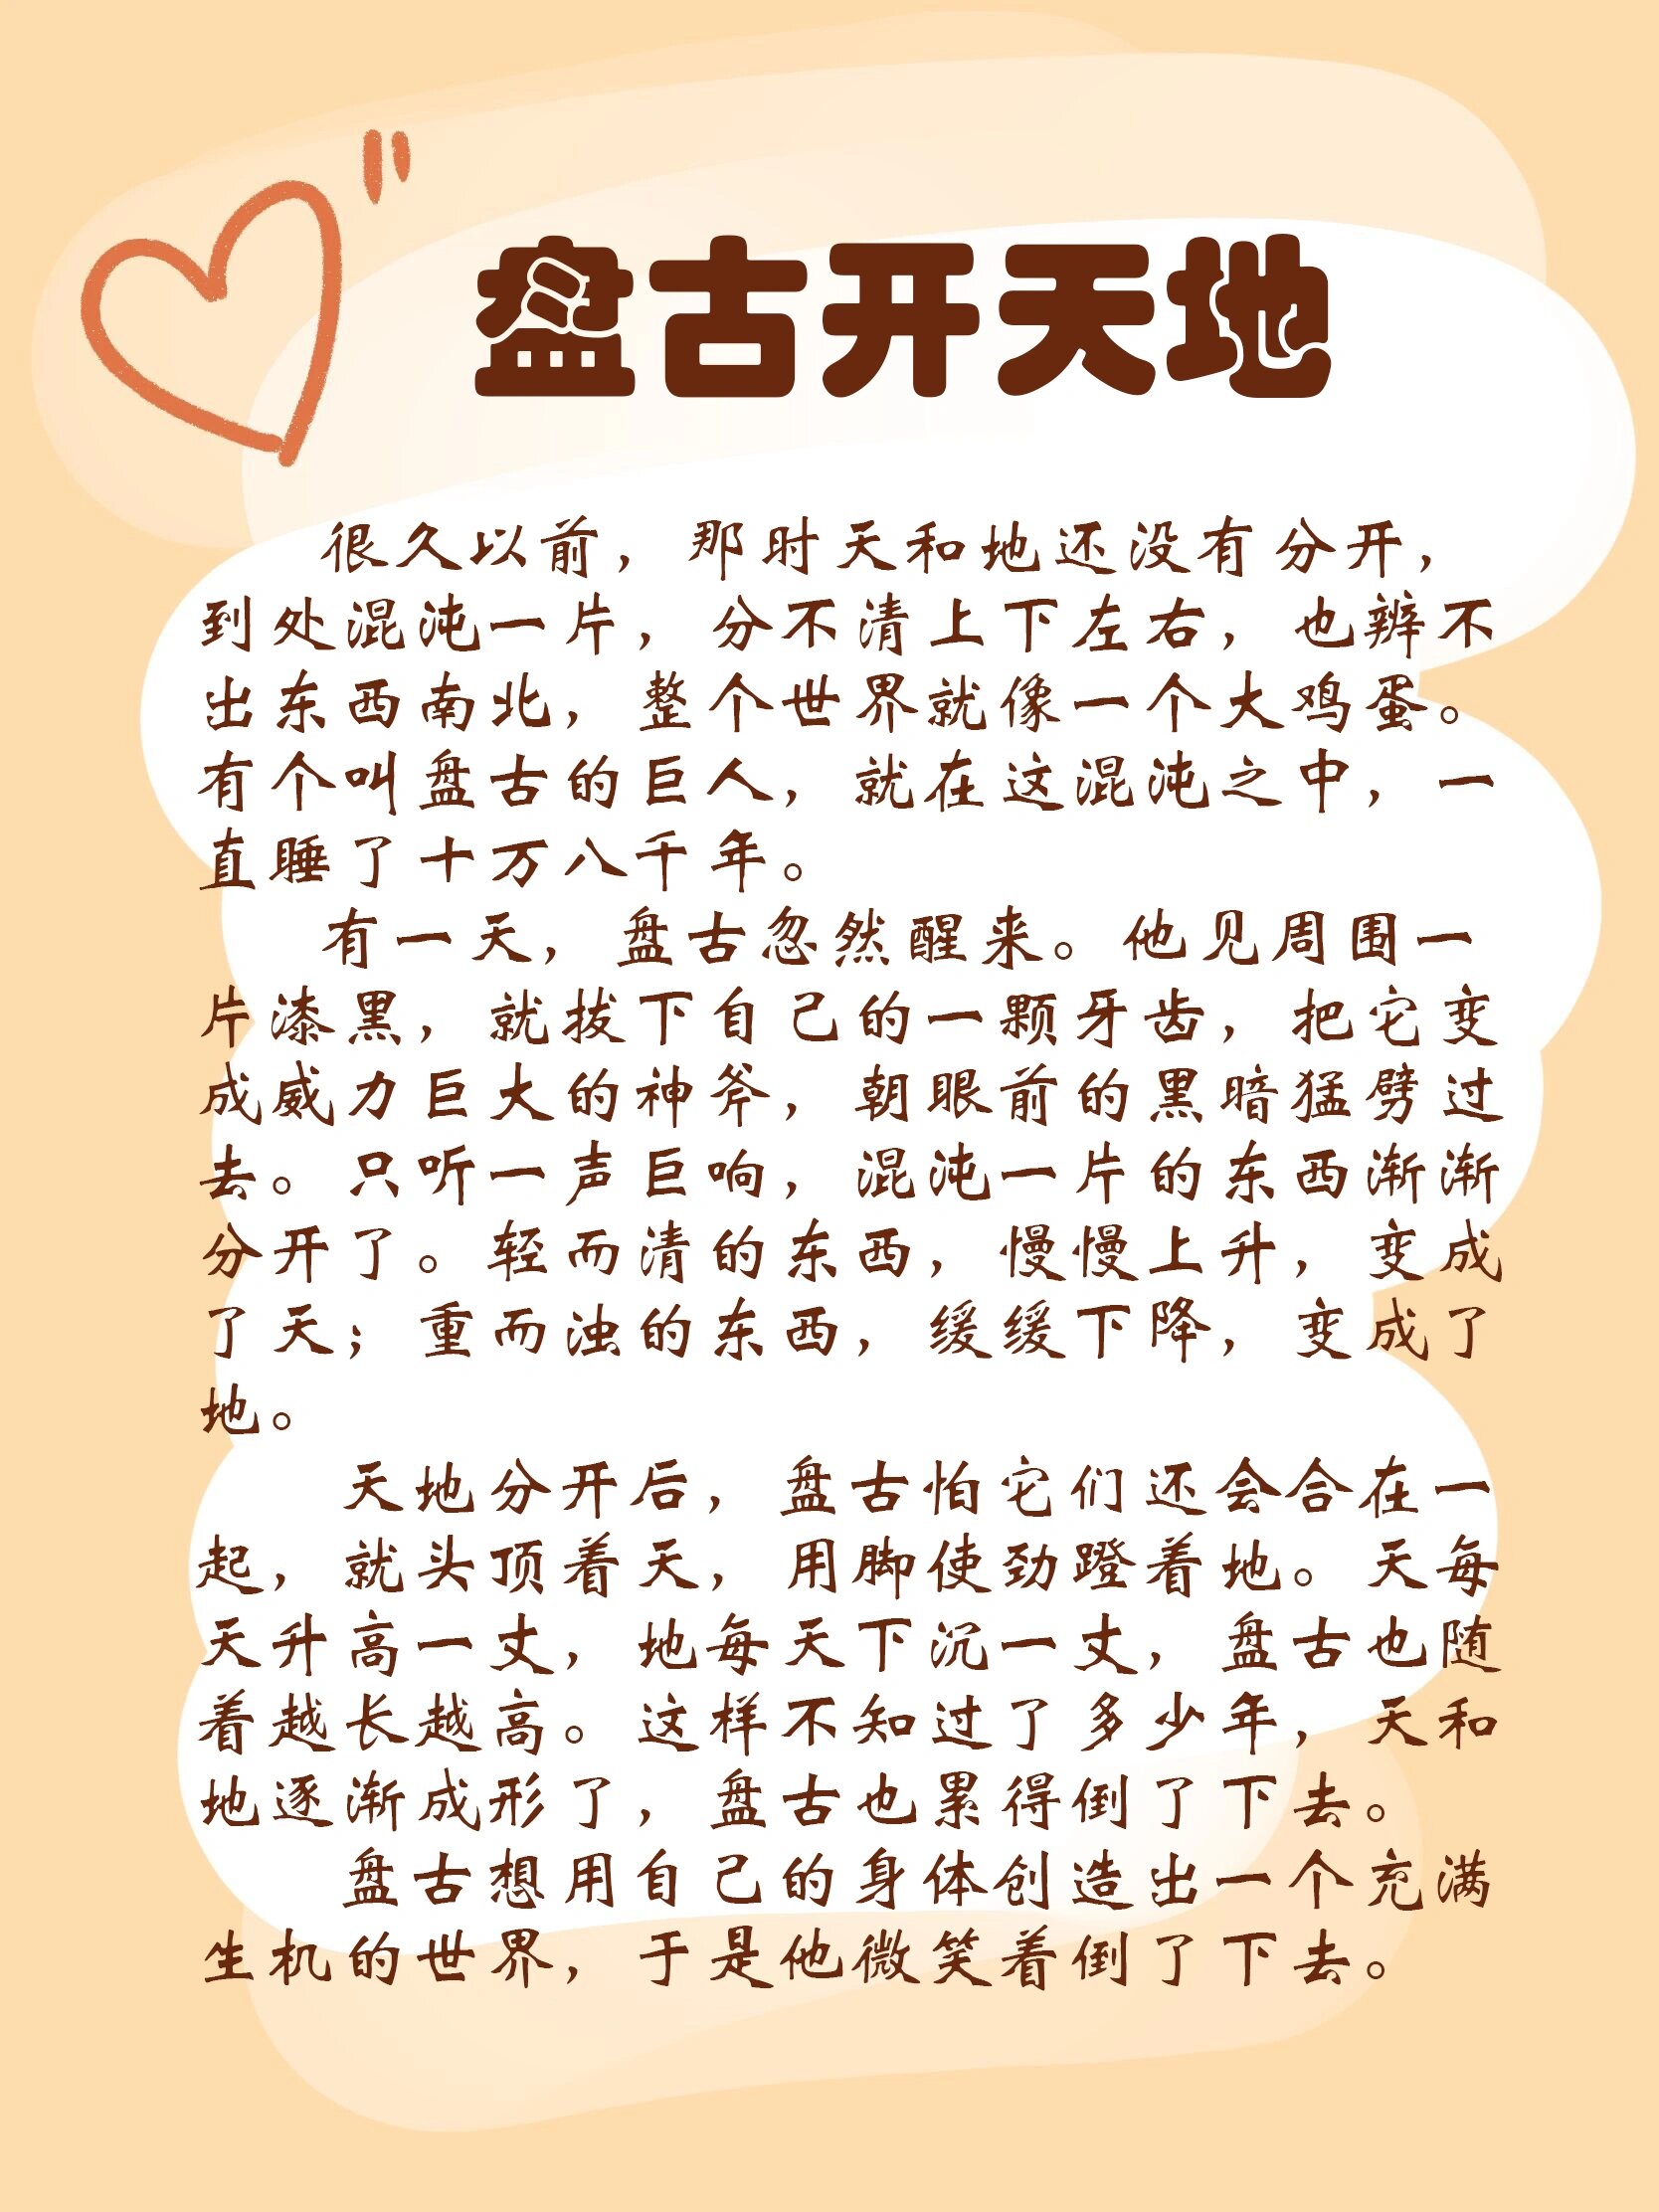 盘古开天地
很久以前，那时天和地还没有分开，
到处混沌一片，分不清上下左右，也辨不
出东西南北，整个世界就像一个大鸡蛋。
有个叫盘古的巨人，就在这混沌之中，一
直睡了十万八千年。
有一天，盘古忽然醒来。他见周围一
片漆黑，就拔下自己的一颗牙齿，把它变
成威力巨大的神斧，朝眼前的黑暗猛劈过
去。只听一声巨响，混沌一片的东西渐渐
分开了。轻而清的东西，慢慢上升，变成
了天；重而浊的东西，缓缓下降，变成了
地。
天地分开后，盘古怕它们还会合在一
起，就头顶着天，用脚使劲蹬着地。天每
天升高一丈，地每天下沉一丈，盘古也随
着越长越高。这样不知过了多少年，天和
地逐渐成形了，盘古也累得倒了下去。
盘古想用自己的身体创造出一个充满
生机的世界，于是他微笑着倒了下去。